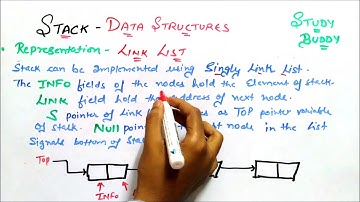 STACK - DATA STRUCTURES
STUDY BUDDY
Representation - LINK LIST
Stack can be implemented using Singly Link List.
The INFO fields of the nodes hold the Element of stack.
LINK field hold the address of next node.
S pointer of Link as TOP pointer variable
of stack. Null point node in the List
Signals bottom of Stac
TOP
INFO